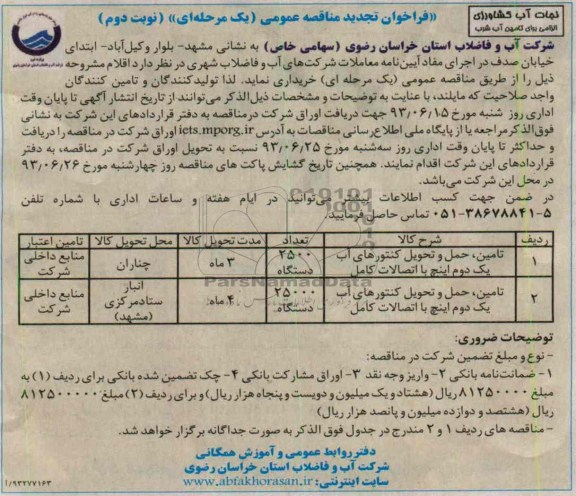 نجات آب کشاورزی
الزامی برای تامین آب شرب
«فراخوان تجدید مناقصه عمومی (یک مرحله‌ای» (نوبت دوم)
شرکت آب و فاضلاب استان خراسان رضوی (سهامی خاص) به نشانی مشهد- بلوار وکیل‌آباد- ابتدای
خیابان صدف در اجرای مفاد آیین‌نامه معاملات شرکت‌های آب و فاضلاب شهری در نظر دارد اقلام مشروحه
ذیل را از طریق مناقصه عمومی (یک مرحله ای) خریداری نماید. لذا تولیدکنندگان و تامین کنندگان
واجد صلاحیت که مایلند، با عنایت به توضیحات و مشخصات ذیل‌الذکر می‌توانند از تاریخ انتشار آگهی تا پایان وقت
اداری روز شنبه مورخ ۹۳/۰۶/۱۵ جهت دریافت اوراق شرکت درمناقصه به دفتر قراردادهای این شرکت به نشانی
فوق‌الذکر مراجعه یا از پایگاه ملی اطلاع‌رسانی مناقصات به آدرس iets.mporg.ir اوراق شرکت در مناقصه را دریافت
و حداکثر تا پایان وقت اداری روز سه‌شنبه مورخ ۹۳/۰۶/۲۵ نسبت به تحویل اوراق شرکت در مناقصه، به دفتر
قراردادهای این شرکت اقدام نمایند. همچنین تاریخ گشایش پاکت های مناقصه روز چهارشنبه مورخ ۹۳/۰۶/۲۶
در محل این شرکت می‌باشد.
در ضمن جهت کسب اطلاعات بیشتر می‌توانید در ایام هفته و ساعات اداری با شماره تلفن
۵-۳۸۶۷۸۸۴۱-۰۵۱ تماس حاصل فرمایید.
ردیف شرح کالا تعداد مدت تحویل کالا محل تحویل کالا تامین اعتبار
۱ تامین، حمل و تحویل کنتورهای آب یک دوم اینچ با اتصالات کامل ۲۵۰۰ دستگاه ۳ ماه چناران منابع داخلی شرکت
۲ تامین، حمل و تحویل کنتورهای آب یک دوم اینچ با اتصالات کامل ۲۵۰۰۰ دستگاه ۴ ماه انبار ستادمرکزی (مشهد) منابع داخلی شرکت
ParsNamadData
توضیحات ضروری:
- نوع و مبلغ تضمین شرکت در مناقصه:
۱- ضمانت‌نامه بانکی ۲- واریز وجه نقد ۳- اوراق مشارکت بانکی ۴- چک تضمین شده بانکی برای ردیف (۱) به
مبلغ ۸۱۲۵۰۰۰۰ ریال (هشتاد و یک میلیون و دویست و پنجاه هزار ریال) و برای ردیف (۲) مبلغ ۸۱۲۵۰۰۰۰۰
ریال (هشتصد و دوازده میلیون و پانصد هزار ریال)
- مناقصه های ردیف ۱ و ۲ مندرج در جدول فوق الذکر به صورت جداگانه برگزار خواهد شد.
دفتر روابط عمومی و آموزش همگانی
شرکت آب و فاضلاب استان خراسان رضوی
سایت اینترنتی: www.abfakhorasan.ir
۱/۹۳۲۷۷۱۶۳